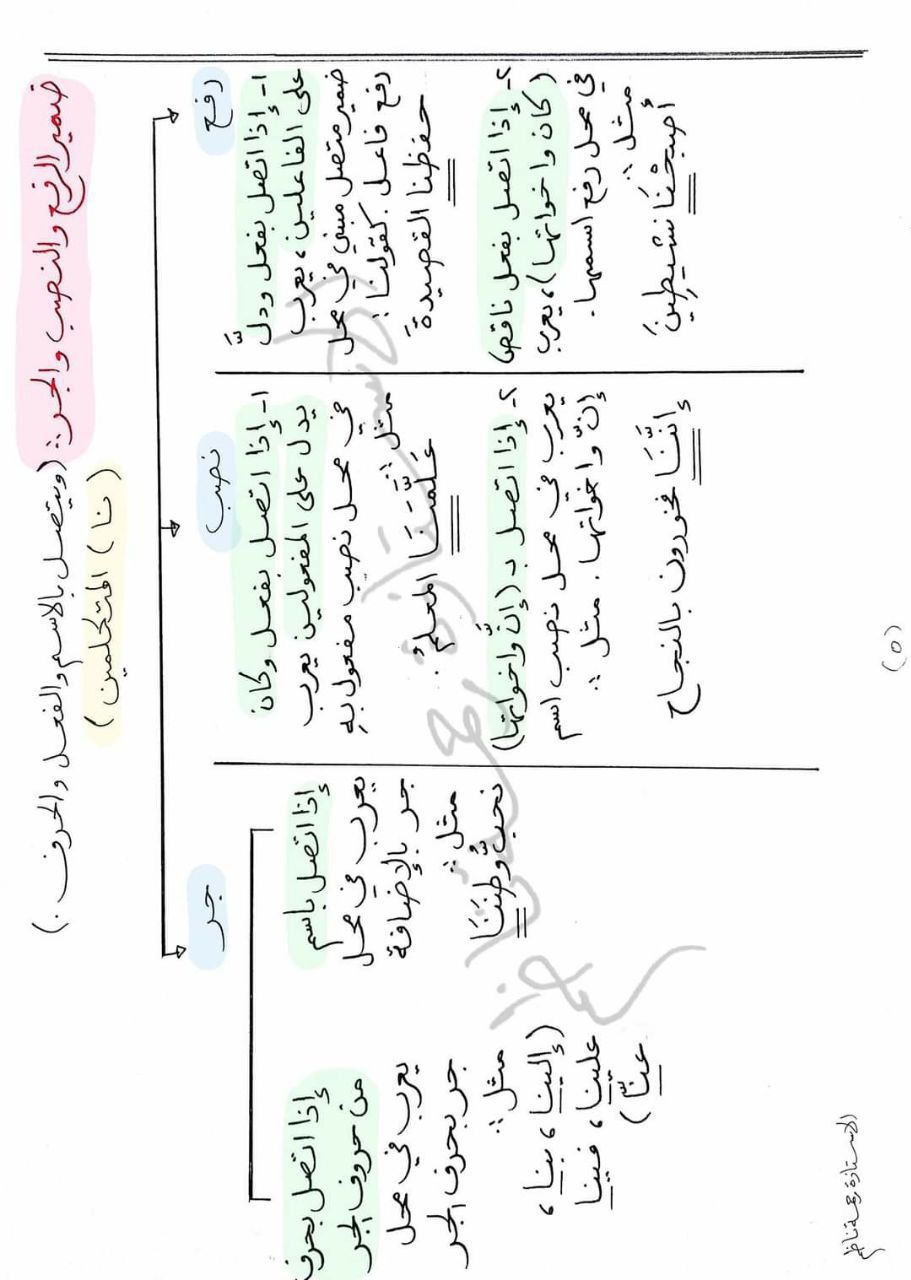 ضمير الرفع والنصب والجر :: (ويتصل بالاسم والفعل والحرف .)
( نا ) المتكلمين )
رفع
١- إذا اتصل بفعل ودلَّ
على الفاعلين، يعرب
ضمير متصل مبني في محل
رفع فاعل . كقولنا :
حفظنا القصيدةَ
٢- إذا اتصل بفعل ناقص
(كان واخواتها) ، يعرب
في محل رفع اسمها .
مثل ::
أصبحْنَا نشيطِينَ
نصب
١- إذا اتصل بفعل وكان
يدل على المفعولين يعرب
في محل نصب مفعول به
مثل :
عَلَّمَنَا المعلمُ .
٢- إذا اتصل بـ (إنَّ واخواتها)
يعرب في محل نصب اسم
إنّ واخواتها . مثل ::
إنَّنَا فخورون بالنجاح
جر
إذا اتصل باسم
يعرب في محل
جر بالإضافة
مثل ::
نحبُّ وطنَنَا
إذا اتصل بحرف
من حروف الجر
يعرب في محل
جر بحرف الجر
مثل ::
(إلينا ، بنا ،
علينا ، فينا
عنّا)
(٥)